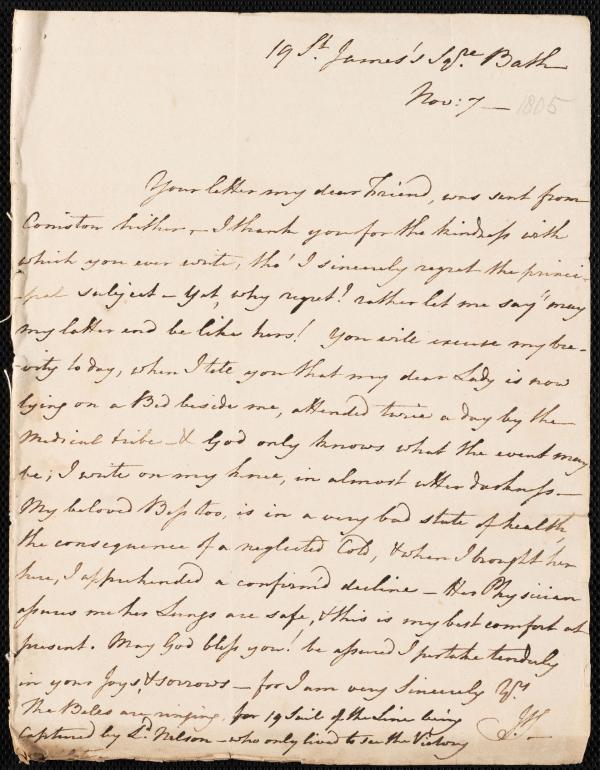 19 St. James's Sqre. Bath
Nov: 7 — 1805
Your letter my dear Friend, was sent from
Coniston hither, — I thank you for the kindness with
which you ever write, tho' I sincerely regret the princi-
-pal subject — Yet, why regret! rather let me say "may
my latter end be like hers! You will excuse my bre-
-vity today, when I tell you that my dear Lady is now
lying on a Bed beside me, attended twice a day by the
Medical tribe — & God only knows what the event may
be; I write on my knee, in almost utter darkness —
My beloved Bess too, is in a very bad state of health,
the consequence of a neglected Cold, & when I brought her
here, I apprehended a confirm'd decline — Her Physician
assures me her Lungs are safe, & this is my best comfort at
present. May God bless you! be assured I partake tenderly
in your Joys, & sorrows — for I am very Sincerely Yrs.
The Bells are ringing, for 19 Sail of the Line being
Captured by Ld. Nelson — who only lived to see the Victory